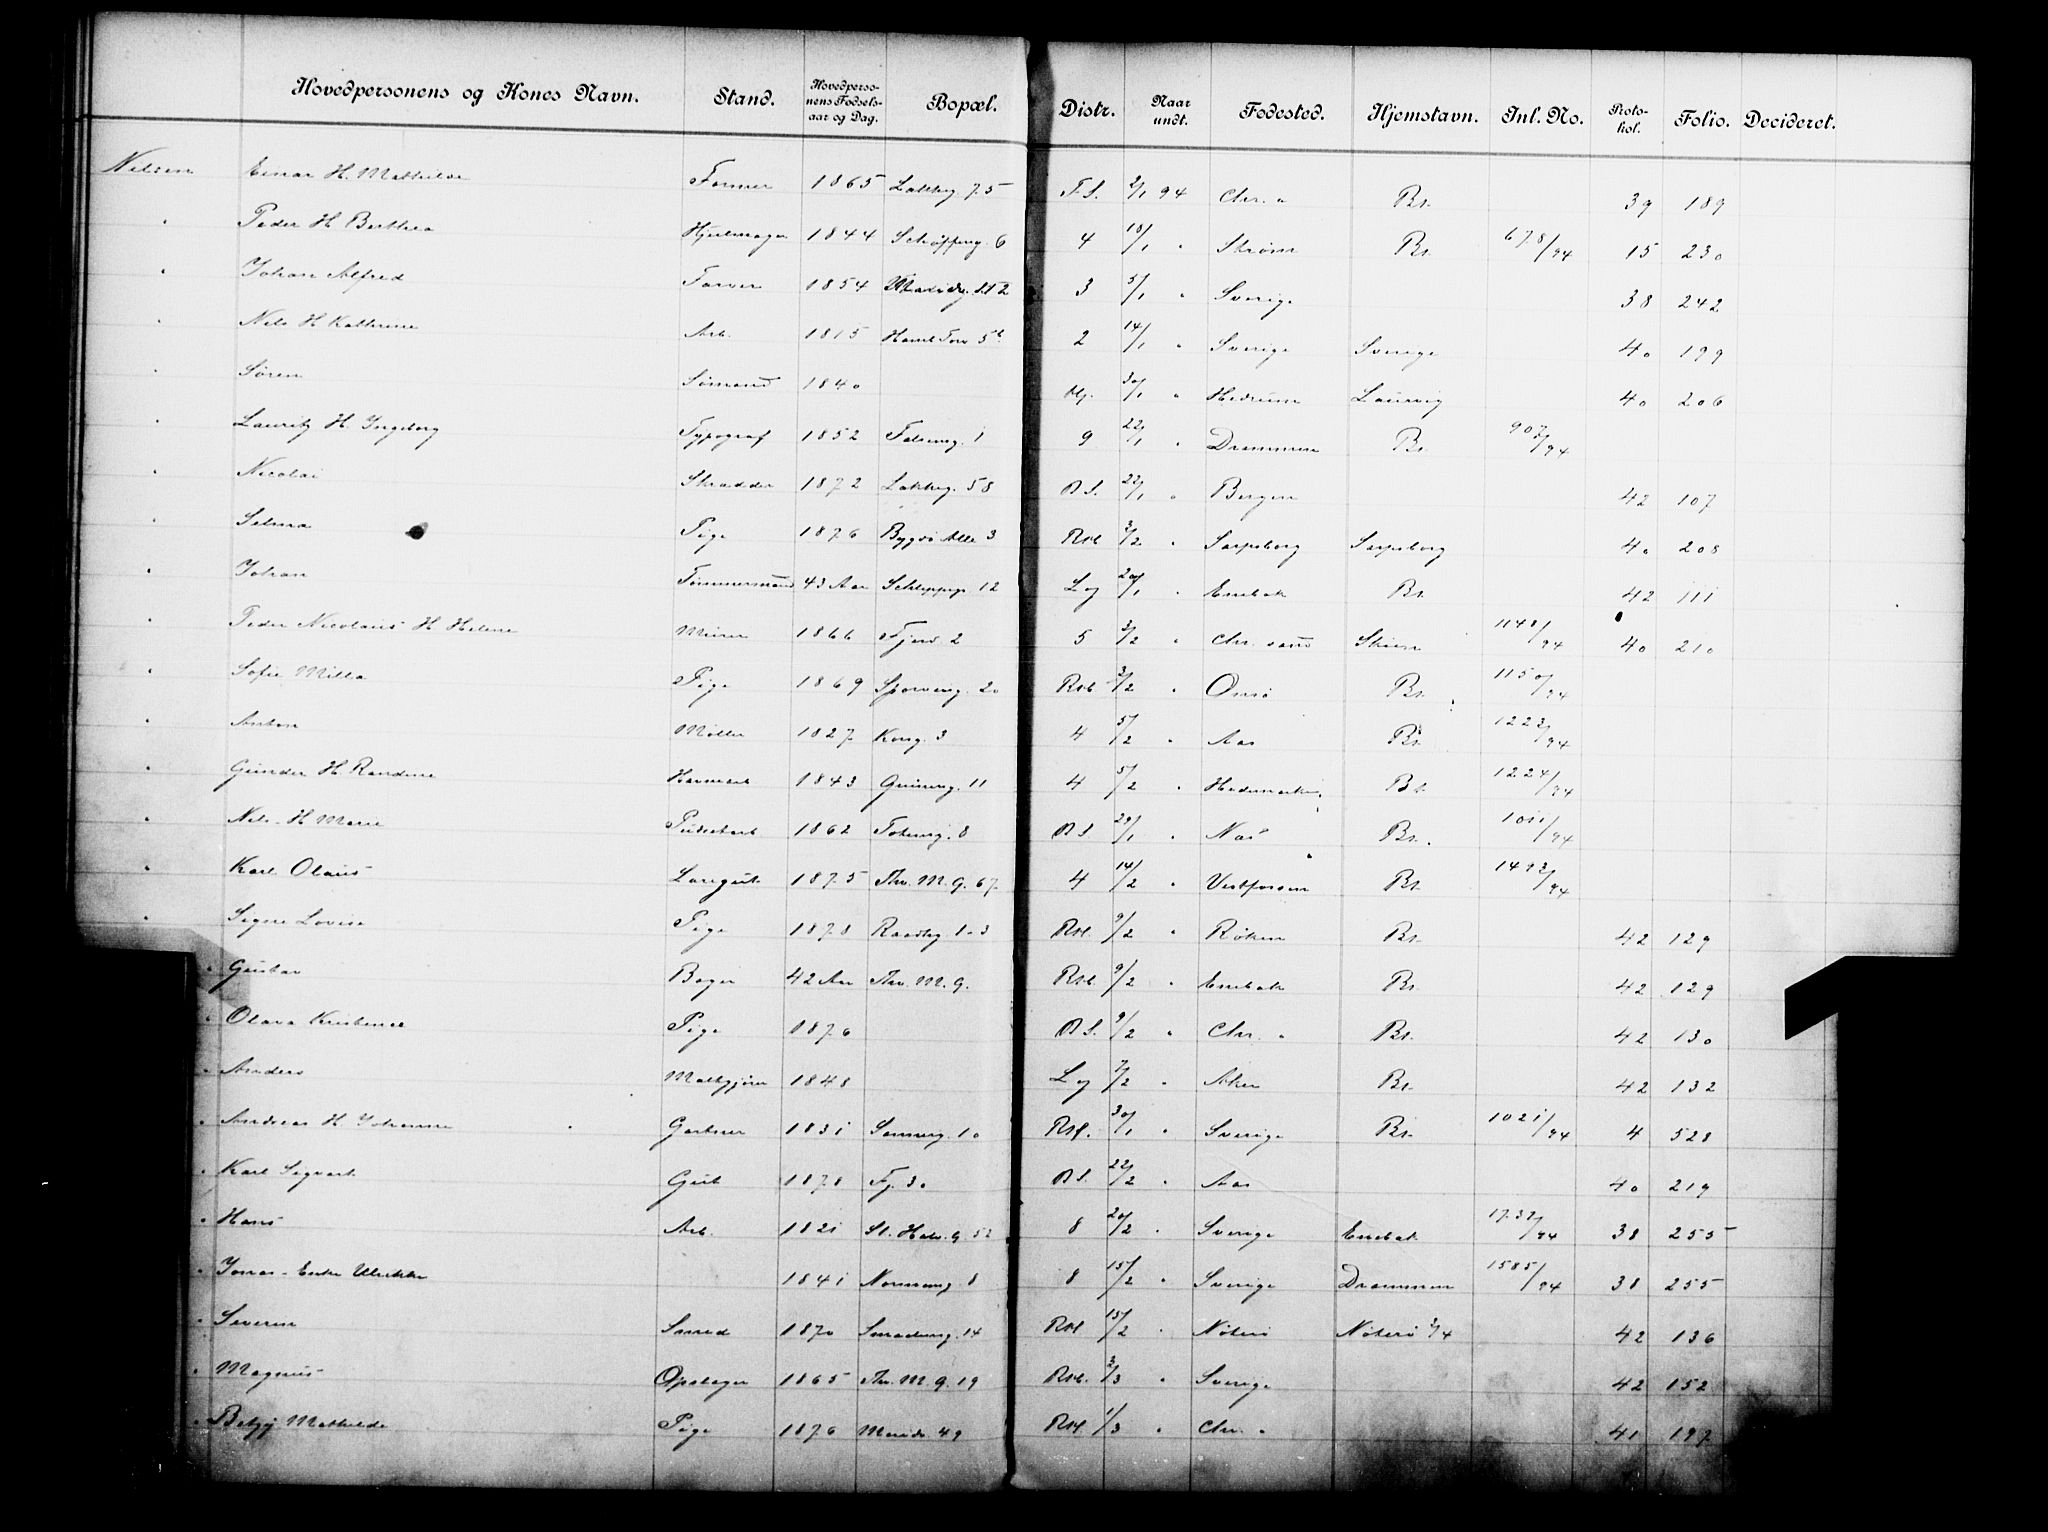 Hovedpersonens og Kones Navn. Stand. Hovedperso-nens Fødsels-aar og Dag. Bopæl. Distr. Naar undt. Fødested. Hjemstavn. Inl. No. Proto-kol. Folio. Decideret.
Nilsen Einar H. Mathilde Former 1865 Lakkeg. 75 F.S. 2/1 94 Chr. a Bt. 39 189
" Peder H. Berthea Hjulmager 1844 Schøffing. 6 4 18/1 " Strøm Bt. 678/94 15 230
" Johan Alfred Farver 1854 3 5/1 " Sverige 38 242
" Nils H. Kathrine Arb. 1815 2 14/1 " Sverige Sverige 40 199
" Søren Sømand 1840 Hj. 30/1 " Hedrum Laurvig 40 206
" Lauritz H. Ingeborg Typograf 1852 Falseng. 1 9 22/1 " Drammen Bt. 907/94
" Nicolai Skrædder 1872 Lakkeg. 58 B.S. 22/1 " Bergen 42 107
" Selma Pige 1876 Bygdø Alle 3 Rst 3/2 " Sarpsborg Sarpsborg 40 208
" Johan Tømmermand 43 Aar Schleppegr. 12 Log 20/1 " Enebak Bt. 42 111
" Peder Nicolaus H. Helene Murer 1866 Fjerd. 2 5 3/2 " Chr. sand Skien 1148/94 40 210
" Sofie Milla Pige 1869 Sporveisg. 20 Rst 3/2 " Onsø Bt. 1150/94
" Anton Møller 1827 Kong. 3 4 5/2 " Aas Bt. 1223/94
" Gunder H. Randine Havnearb 1843 Grüners. 11 4 5/2 " Hedemarken Bt. 1224/94
" Nils H. Marie Pudsearb 1862 Toteng. 8 B.S. 29/1 " Nas Bt. 1011/94
" Karl Olaus Løregut 1875 Thv. M. G. 67 4 14/2 " Vestfossen Bt. 1493/94
" Signe Lovise Pige 1878 1-3 Rst. 9/2 " Røken Bt. 42 129
" Gustav Bager 42 Aar Thv. M. G. Rst. 9/2 " Enebak Bt. 42 129
" Olava Kristense Pige 1876 B.S. 9/2 " Chr. a Bt. 42 130
" Anders 1848 Log 7/2 " Aker Bt. 42 132
" Andreas H. Johanne Gartner 1831 Sannerg. 10 Rst. 30/1 " Sverige Bt. 1021/94 4 528
" Karl Sigvart Gut 1878 Fj. 30 B.S. 22/2 " Aas 40 219
" Hans Arb. 1821 St. Halv. G. 52 8 20/2 " Sverige Enebak 1732/94 38 255
" Jonas - Enke Ulrikke 1841 Normang. 8 8 15/2 " Sverige Drammen 1585/94 38 255
" Severin Smed 1870 14 Rst 15/2 " Nøterø Nøterø 42 136
" Magnus Opsteger 1865 Thv. M. G. 19 Rst. 3/3 " Sverige 42 152
" Betzy Mathilde Pige 1876 49 Rst 1/3 " Chr. a 41 197